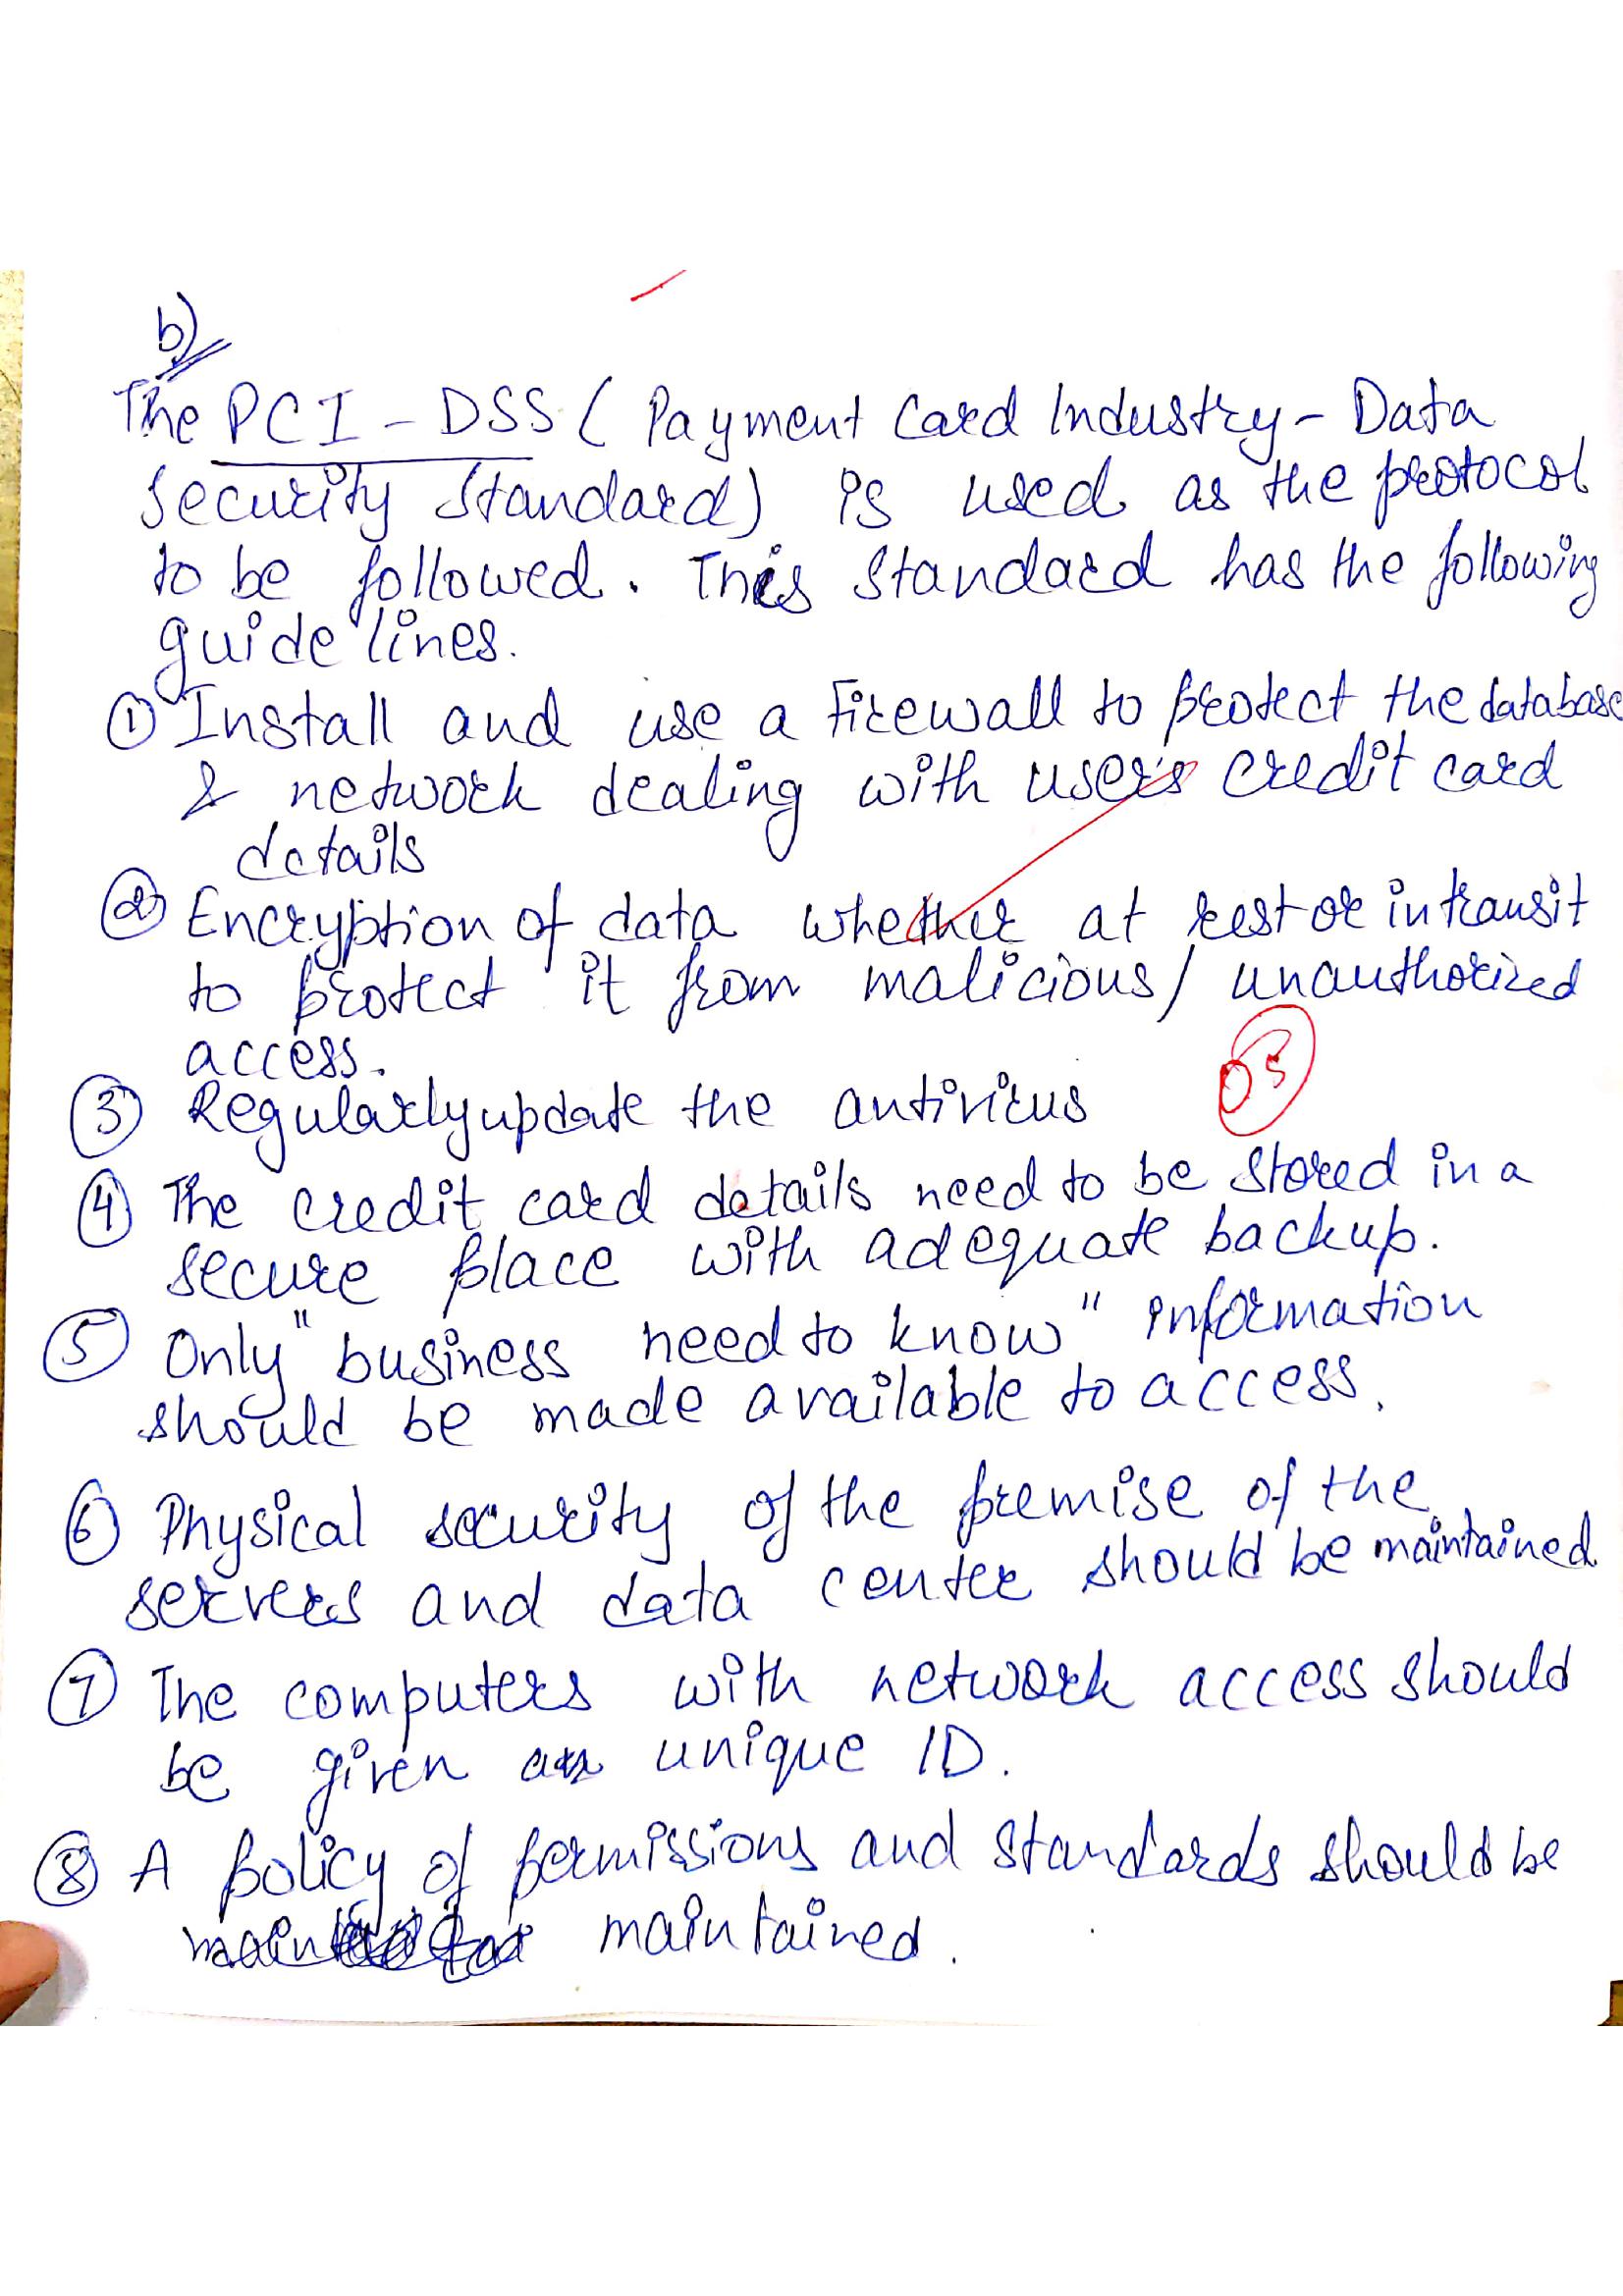 b)
The PCI - DSS ( Payment Card Industry - Data
Security Standard) is used as the protocol
to be followed. This standard has the following
guide lines.
① Install and use a Firewall to protect the database
& network dealing with user's credit card
details
② Encryption of data whether at rest or in transit
to protect it from malicious / unauthorized
access.
05
③ Regularly update the antivirus
④ The credit card details need to be stored in a
secure place with adequate backup.
⑤ Only "business need to know" information
should be made available to access.
⑥ Physical security of the premise of the
servers and data center should be maintained
⑦ The computers with network access should
be given an unique ID.
⑧ A policy of permissions and standards should be
maintained.